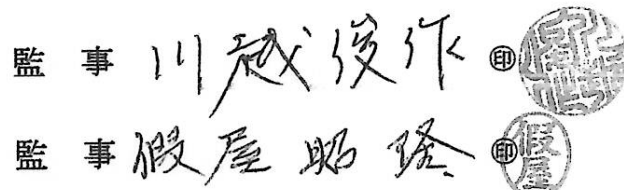 監 事 川越俊作 ㊞
監 事 假屋昭隆 ㊞ 假屋